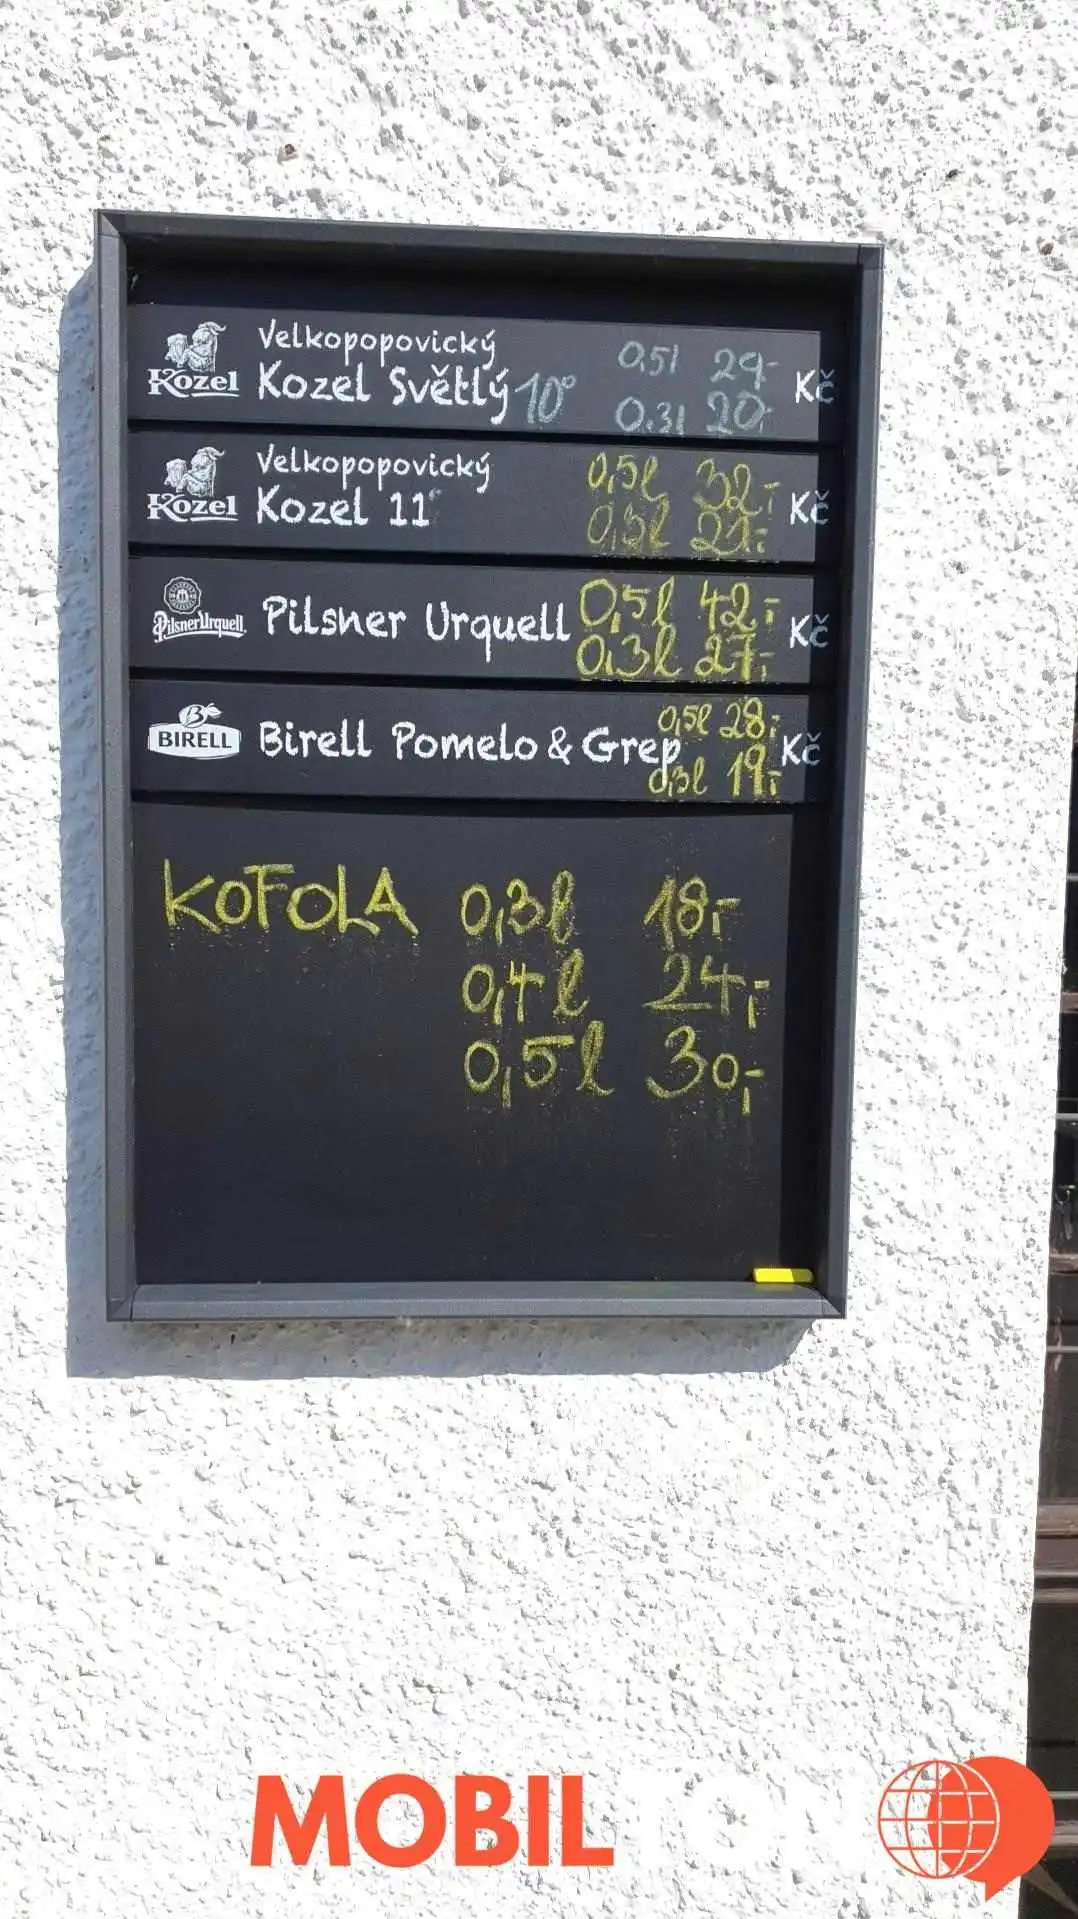 Kozel
Velkopopovický
Kozel Světlý 10°
0,5l 29,-
0.3l 20,-
Kč
Kozel
Velkopopovický
Kozel 11°
0,5l 32,-
Kč
Pilsner Urquell
Pilsner Urquell
0,5l 42,-
0,3l 27,-
Kč
BIRELL
Birell Pomelo & Grep
0,5l 28,-
0,3l 19,-
Kč
KOFOLA 0,3l 18,-
0,4l 24,-
0,5l 30,-
MOBIL